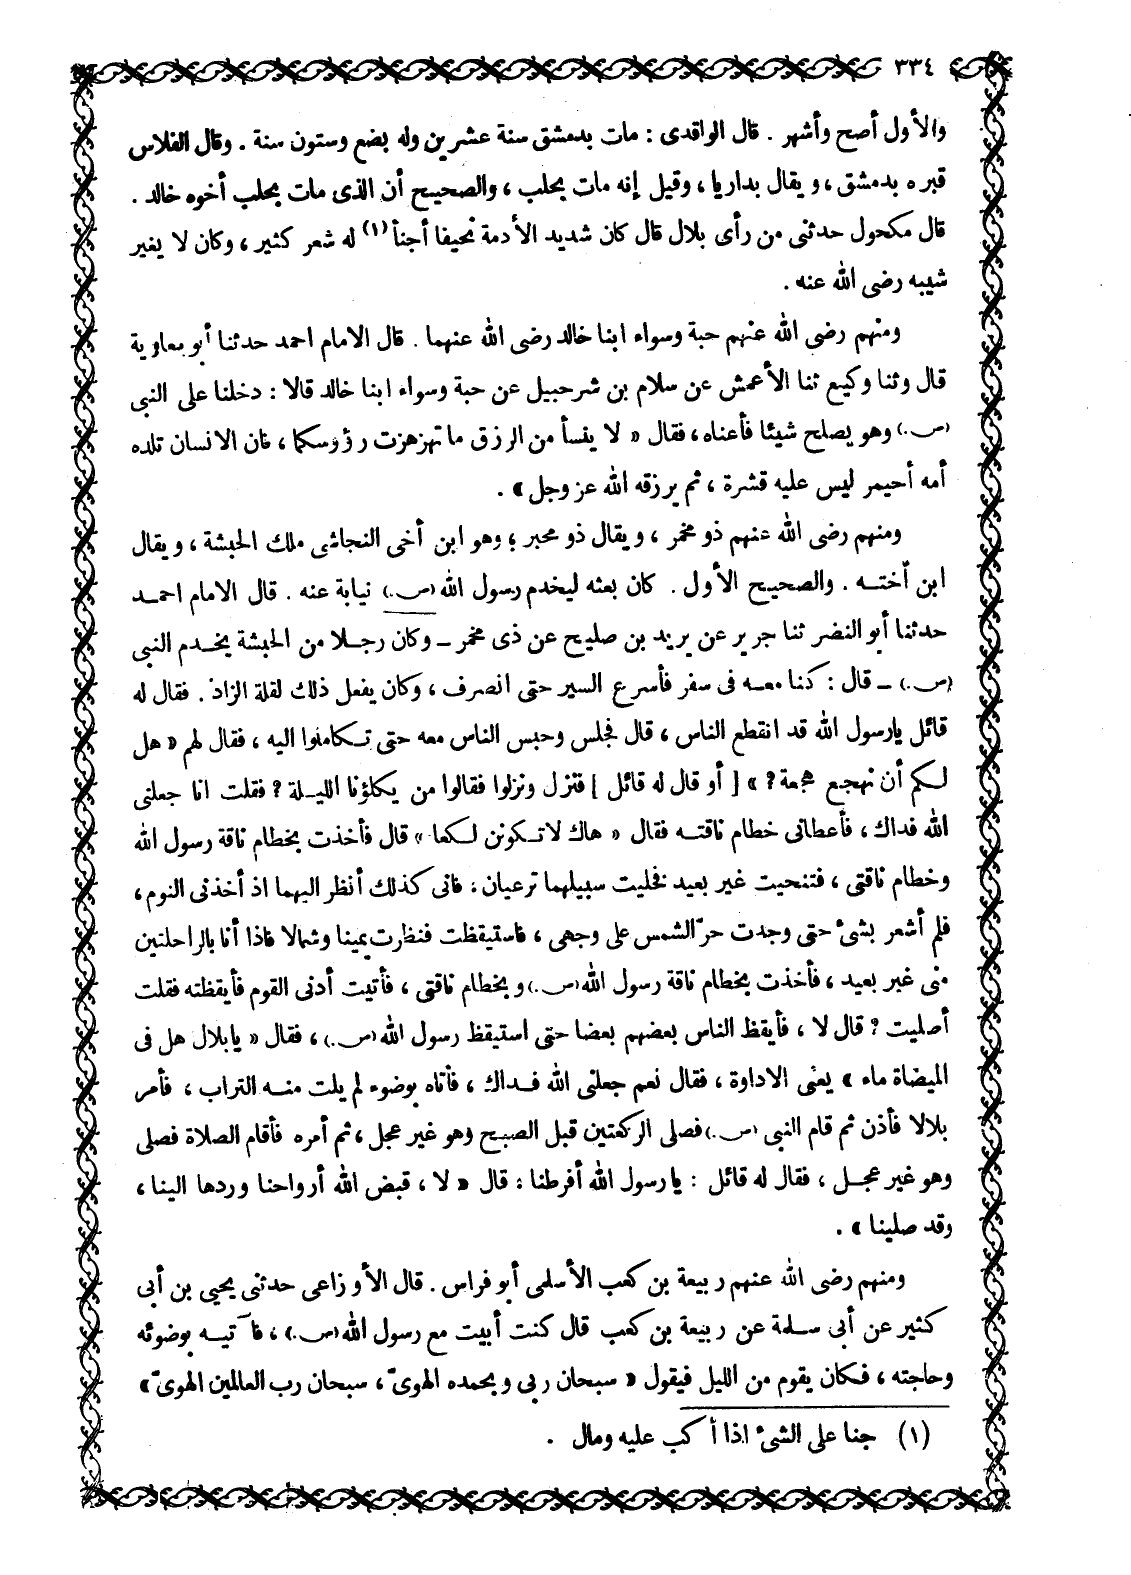 ٣٣٤
والأول أصح وأشهر . قال الواقدى : مات بدمشق سنة عشرين وله بضع وستون سنة . وقال الفلاس
قبره بدمشق ، ويقال بداريا ، وقيل إنه مات بحلب ، والصحيح أن الذى مات بحلب أخوه خالد .
قال مكحول حدثنى من رأى بلال قال كان شديد الأدمة نحيفا أجنأ (١) له شعر كثير ، وكان لا يغير
شيبه رضى الله عنه .
ومنهم رضى الله عنهم حبة وسواء ابنا خالد رضى الله عنهما . قال الامام احمد حدثنا أبو معاوية
قال وثنا وكيع ثنا الأعمش عن سلام بن شرحبيل عن حبة وسواء ابنا خالد قالا : دخلنا على النبى
(ص.) وهو يصلح شيئا فأعناه ، فقال « لا ينسأ من الرزق ما تهزهزت رؤوسكما ، فان الانسان تلده
أمه أحيمر ليس عليه قشرة ، ثم يرزقه الله عز وجل » .
ومنهم رضى الله عنهم ذو مخمر ، ويقال ذو محبر ؛ وهو ابن أخى النجاشى ملك الحبشة ، ويقال
ابن أخته . والصحيح الأول . كان بعثه ليخدم رسول الله (ص.) نيابة عنه . قال الامام احمد
حدثنا أبو النضر ثنا جرير عن يزيد بن صليح عن ذى مخمر ــ وكان رجلا من الحبشة يخدم النبى
(ص.) ــ قال : كنا معه فى سفر فأسرع السير حتى انصرف ، وكان يفعل ذلك لقلة الزاد . فقال له
قائل يارسول الله قد انقطع الناس ، قال فجلس وحبس الناس معه حتى تكاملوا اليه ، فقال لهم « هل
لكم أن نهجع هجعة ? » [ أو قال له قائل ] فنزل ونزلوا فقالوا من يكلؤنا الليلة ? فقلت انا جعلنى
الله فداك ، فأعطانى خطام ناقته فقال « هاك لا تكونن لكعا » قال فأخذت بخطام ناقة رسول الله
وخطام ناقتى ، فتنحيت غير بعيد فخليت سبيلهما ترعيان ؛ فانى كذلك أنظر اليهما اذ أخذنى النوم ،
فلم أشعر بشئ حتى وجدت حرّ الشمس على وجهى ، فاستيقظت فنظرت يمينا وشمالا فاذا أنا بالراحلتين
منى غير بعيد ، فأخذت بخطام ناقة رسول الله (ص.) وبخطام ناقتى ، فأتيت أدنى القوم فأيقظته فقلت
أصليت ? قال لا ، فأيقظ الناس بعضهم بعضا حتى استيقظ رسول الله (ص.) ، فقال « يابلال هل فى
الميضاة ماء » يعنى الاداوة ، فقال نعم جعلنى الله فداك ، فأتاه بوضوء لم يلت منه التراب ، فأمر
بلالا فأذن ثم قام النبى (ص.) فصلى الركعتين قبل الصبح وهو غير عجل ، ثم أمره فأقام الصلاة فصلى
وهو غير عجل ، فقال له قائل : يارسول الله أفرطنا ؛ قال « لا ، قبض الله أرواحنا وردها الينا ،
وقد صلينا » .
ومنهم رضى الله عنهم ربيعة بن كعب الأسلمى أبو فراس . قال الأوزاعى حدثنى يحيى بن أبى
كثير عن أبى سلمة عن ربيعة بن كعب قال كنت أبيت مع رسول الله (ص.) ، فآتيه بوضوئه
وحاجته ، فكان يقوم من الليل فيقول « سبحان ربى وبحمده الهوىّ ، سبحان رب العالمين الهوىّ »
(١) جنا على الشئ اذا أكب عليه ومال .